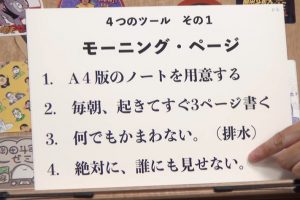 4つのツール その1
モーニング・ページ
1. A4版のノートを用意する
2. 毎朝、起きてすぐ3ページ書く
3. 何でもかまわない。(排水)
4. 絶対に、誰にも見せない。